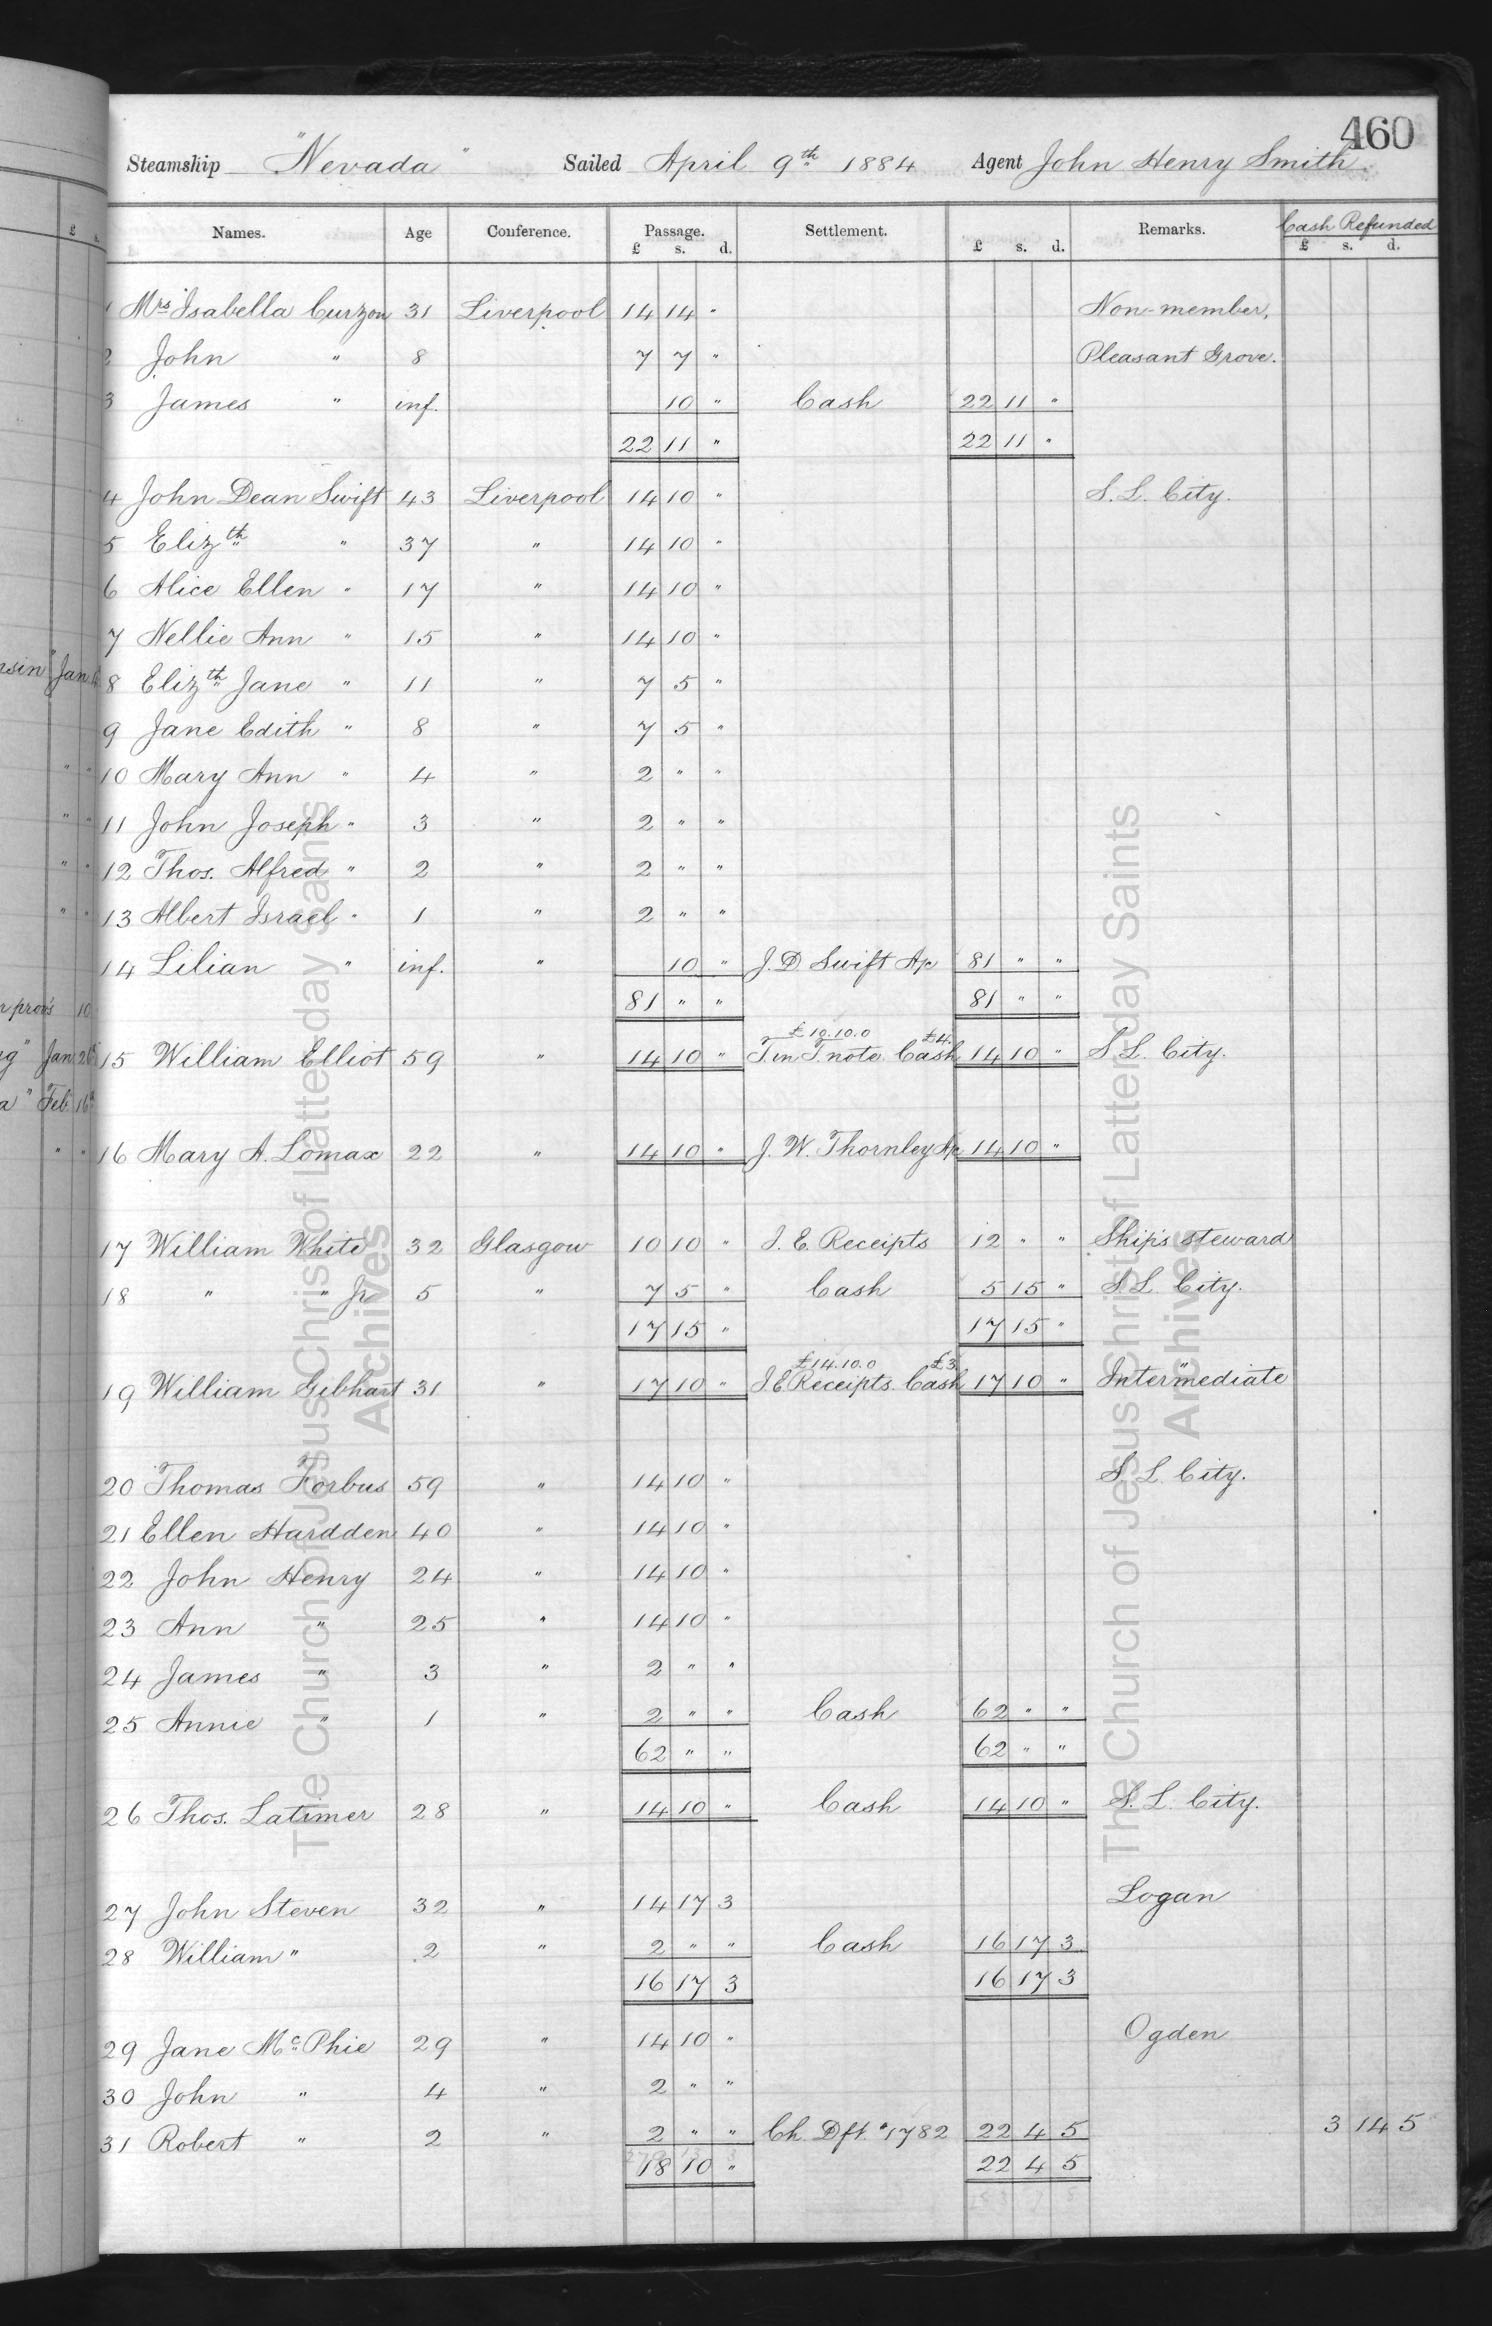 460
Steamship "Nevada" Sailed April 9th 1884 Agent John Henry Smith
Names. Age Conference. Passage. Settlement. Remarks. Cash Refunded
£ s. d. £ s. d. £ s. d.
1 Mrs Isabella Curzon 31 Liverpool 14 14 " Non-member,
2 John " 8 7 7 " Pleasant Grove.
3 James " inf. 10 " Cash 22 11 "
22 11 " 22 11 "
4 John Dean Swift 43 Liverpool 14 10 " S. L. City.
5 Elizth " 37 " 14 10 "
6 Alice Ellen " 17 " 14 10 "
7 Nellie Ann " 15 " 14 10 "
8 Elizth Jane " 11 " 7 5 "
9 Jane Edith " 8 " 7 5 "
10 Mary Ann " 4 " 2 " "
11 John Joseph " 3 " 2 " "
12 Thos. Alfred " 2 " 2 " "
13 Albert Israel " 1 " 2 " "
14 Lilian " inf. " 10 " J. D. Swift A/c 81 " "
81 " " 81 " "
£10.10.0 £4
15 William Elliot 59 " 14 10 " T. in T. note Cash 14 10 " S L. City.
16 Mary A. Lomax 22 " 14 10 " J. W. Thornley A/c 14 10 "
17 William White 32 Glasgow 10 10 " I. E. Receipts 12 " " Ships steward
18 " " Jr 5 " 7 5 " Cash 5 15 " S L. City.
17 15 " 17 15 "
£14.10.0 £3
19 William Gibhart 31 " 17 10 " I. E. Receipts. Cash 17 10 " "Intermediate"
20 Thomas Forbus 59 " 14 10 " S. L. City.
21 Ellen Hardden 40 " 14 10 "
22 John Henry 24 " 14 10 "
23 Ann " 25 " 14 10 "
24 James " 3 " 2 " "
25 Annie " 1 " 2 " " Cash 62 " "
62 " " 62 " "
26 Thos. Latimer 28 " 14 10 " Cash 14 10 " S. L. City.
27 John Steven 32 " 14 17 3 Logan
28 William " 2 " 2 " " Cash 16 17 3
16 17 3 16 17 3
29 Jane McPhie 29 " 14 10 " Ogden
30 John " 4 " 2 " "
31 Robert " 2 " 2 " " Ch. Dft. "1782 22 4 5 3 14 5
18 10 " 22 4 5
The Church of Jesus Christ of Latter-day Saints
Archives
The Church of Jesus Christ of Latter-day Saints
Archives